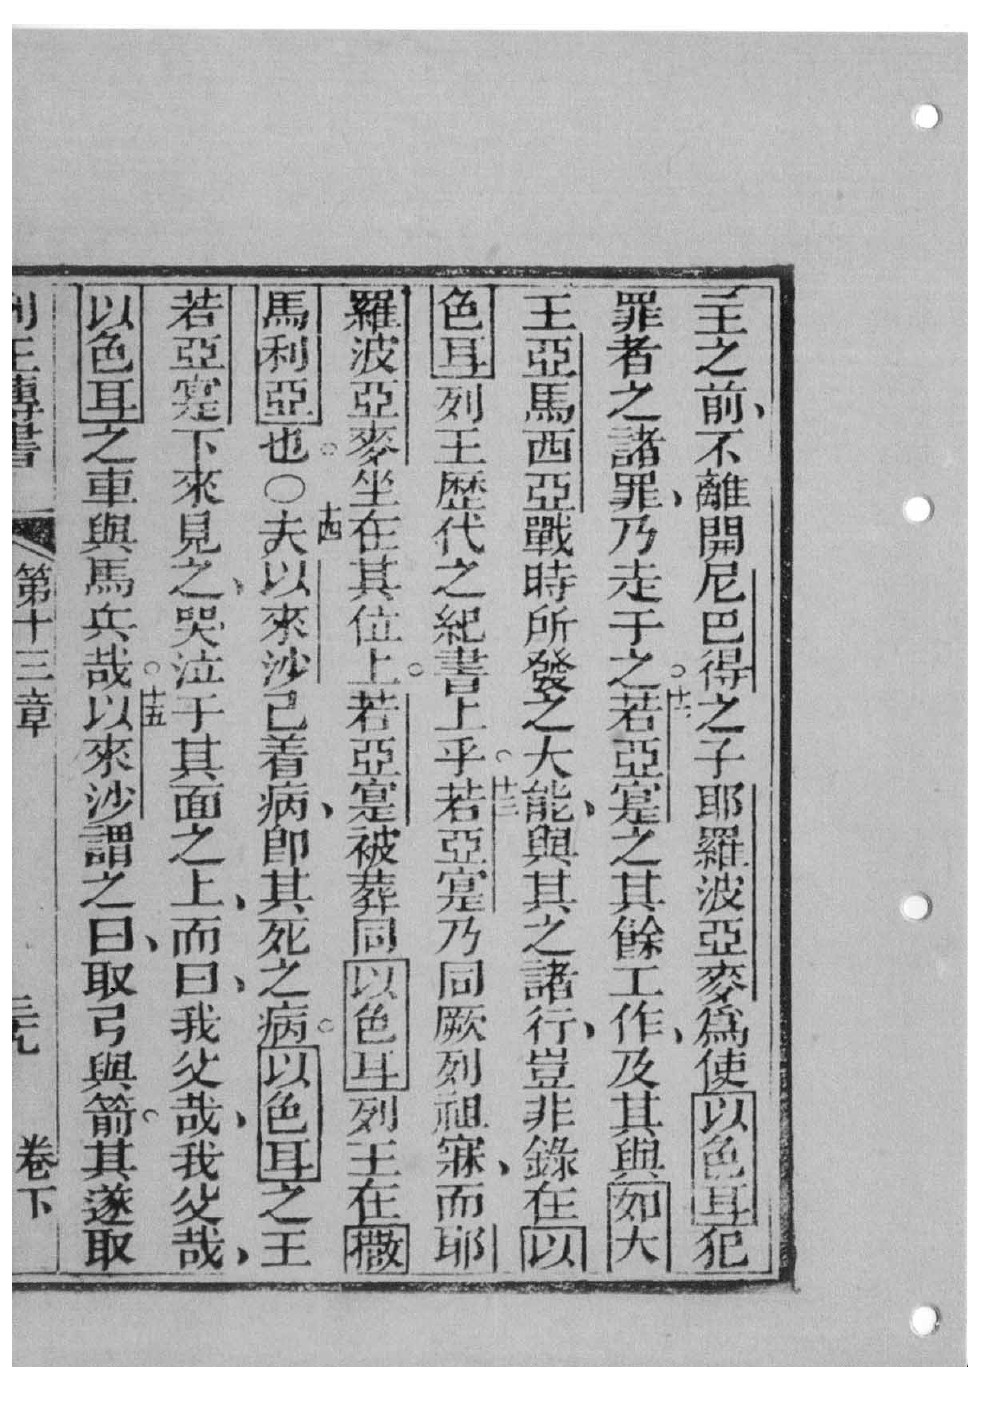 主之前、不離開尼巴得之子耶羅波亞麥爲使以色耳犯
罪者之諸罪、乃走于之。十二若亞寔之其餘工作、及其與如大
王亞馬西亞戰時所發之大能、與其之諸行、豈非錄在以
色耳列王歷代之紀書上乎。十三若亞寔乃同厥列祖寐、而耶
羅波亞麥坐在其位上。若亞寔被葬同以色耳列王在撒
馬利亞也。○十四夫以來沙己着病、卽其死之病。以色耳之王
若亞寔下來見之、哭泣于其面之上、而曰、我父哉、我父哉、
以色耳之車與馬兵哉。十五以來沙謂之曰、取弓與箭。其遂取
列王傳書 第十三章 卷下